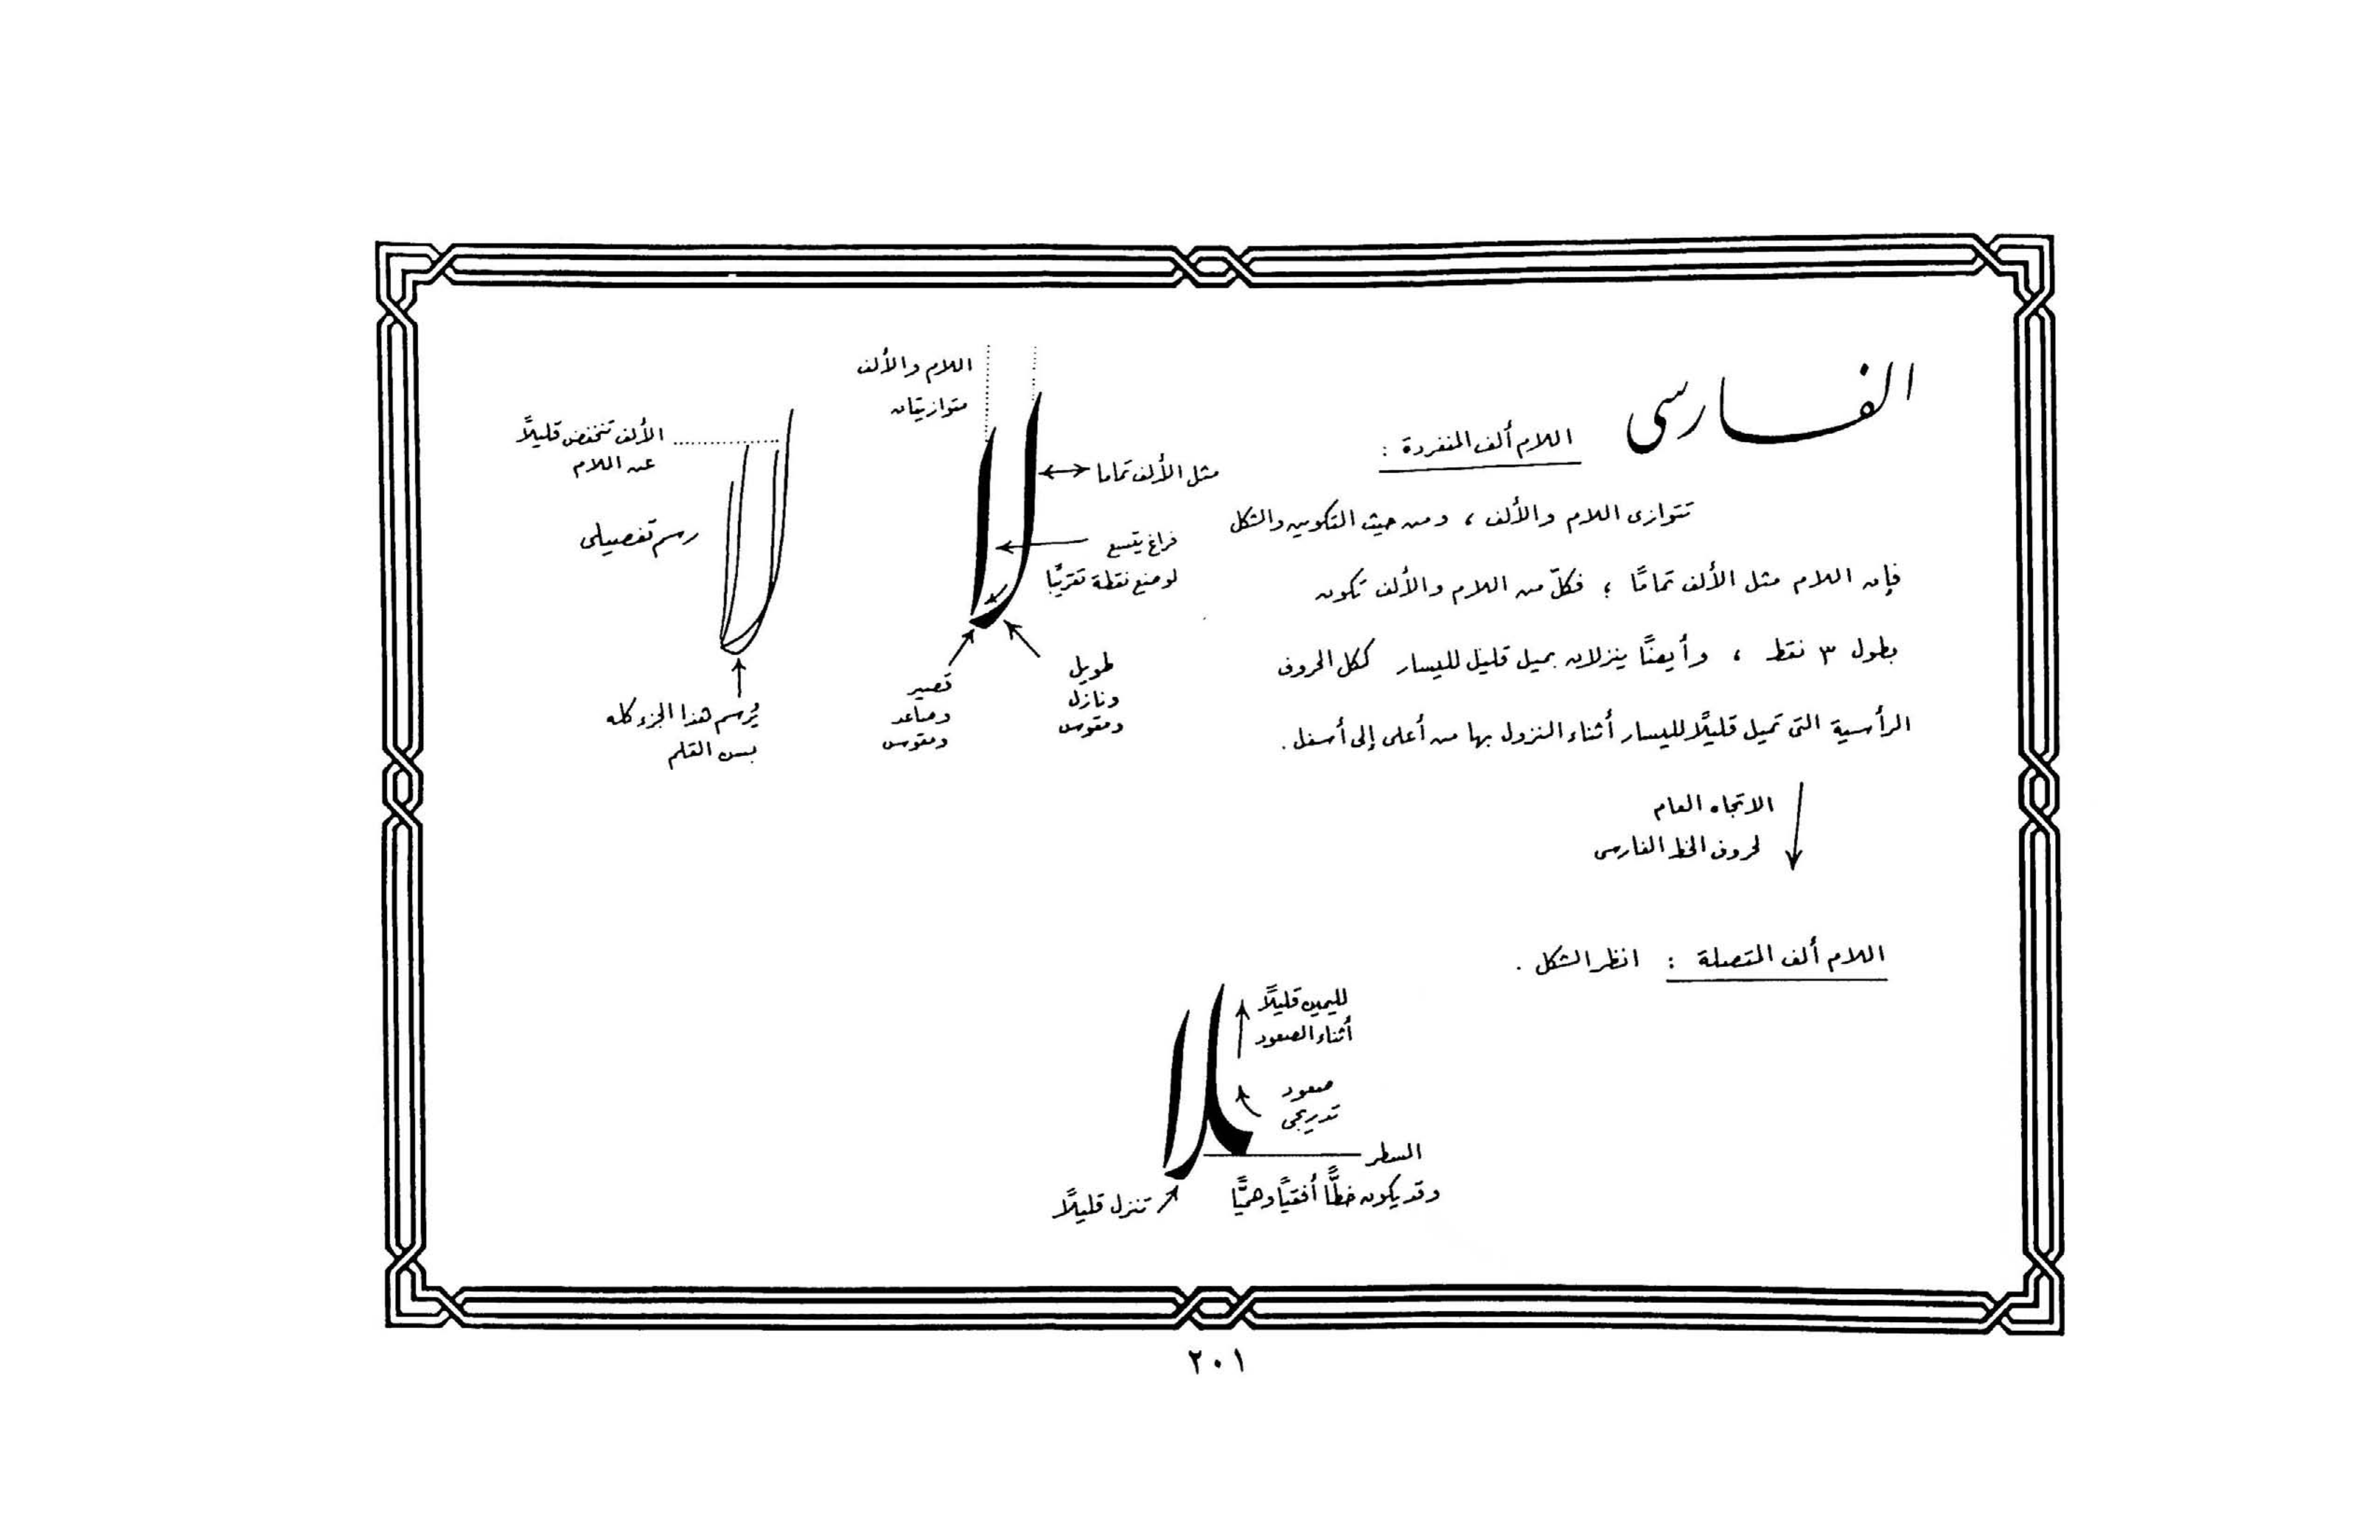 الفارسى
اللام ألف المنفردة :
تتوازى اللام والألف ، ومن حيث التكوين والشكل
فإن اللام مثل الألف تمامًا ؛ فكلّ من اللام والألف تكون
بطول ٣ نقط ، وأيضًا ينزلان بميل قليل لليسار ككل الحروف
الرأسية التى تميل قليلًا لليسار أثناء النزول بها من أعلى إلى أسفل .
الاتجاه العام
لحروف الخط الفارسى
اللام والألف
متوازيتان
مثل الألف تمامًا
فراغ يتسع
لوضع نقطة تقريبًا
طويل
ونازل
ومقوس
قصير
وصاعد
ومقوس
الألف تنخفض قليلًا
عن اللام
رسم تفصيلى
يُرسم هذا الجزء كله
بسن القلم
اللام ألف المتصلة : انظر الشكل .
لليمين قليلًا
أثناء الصعود
صعود
تدريجى
السطر
وقد يكون خطًّا أفقيًا وهميًّا
تنزل قليلًا
٢٠١